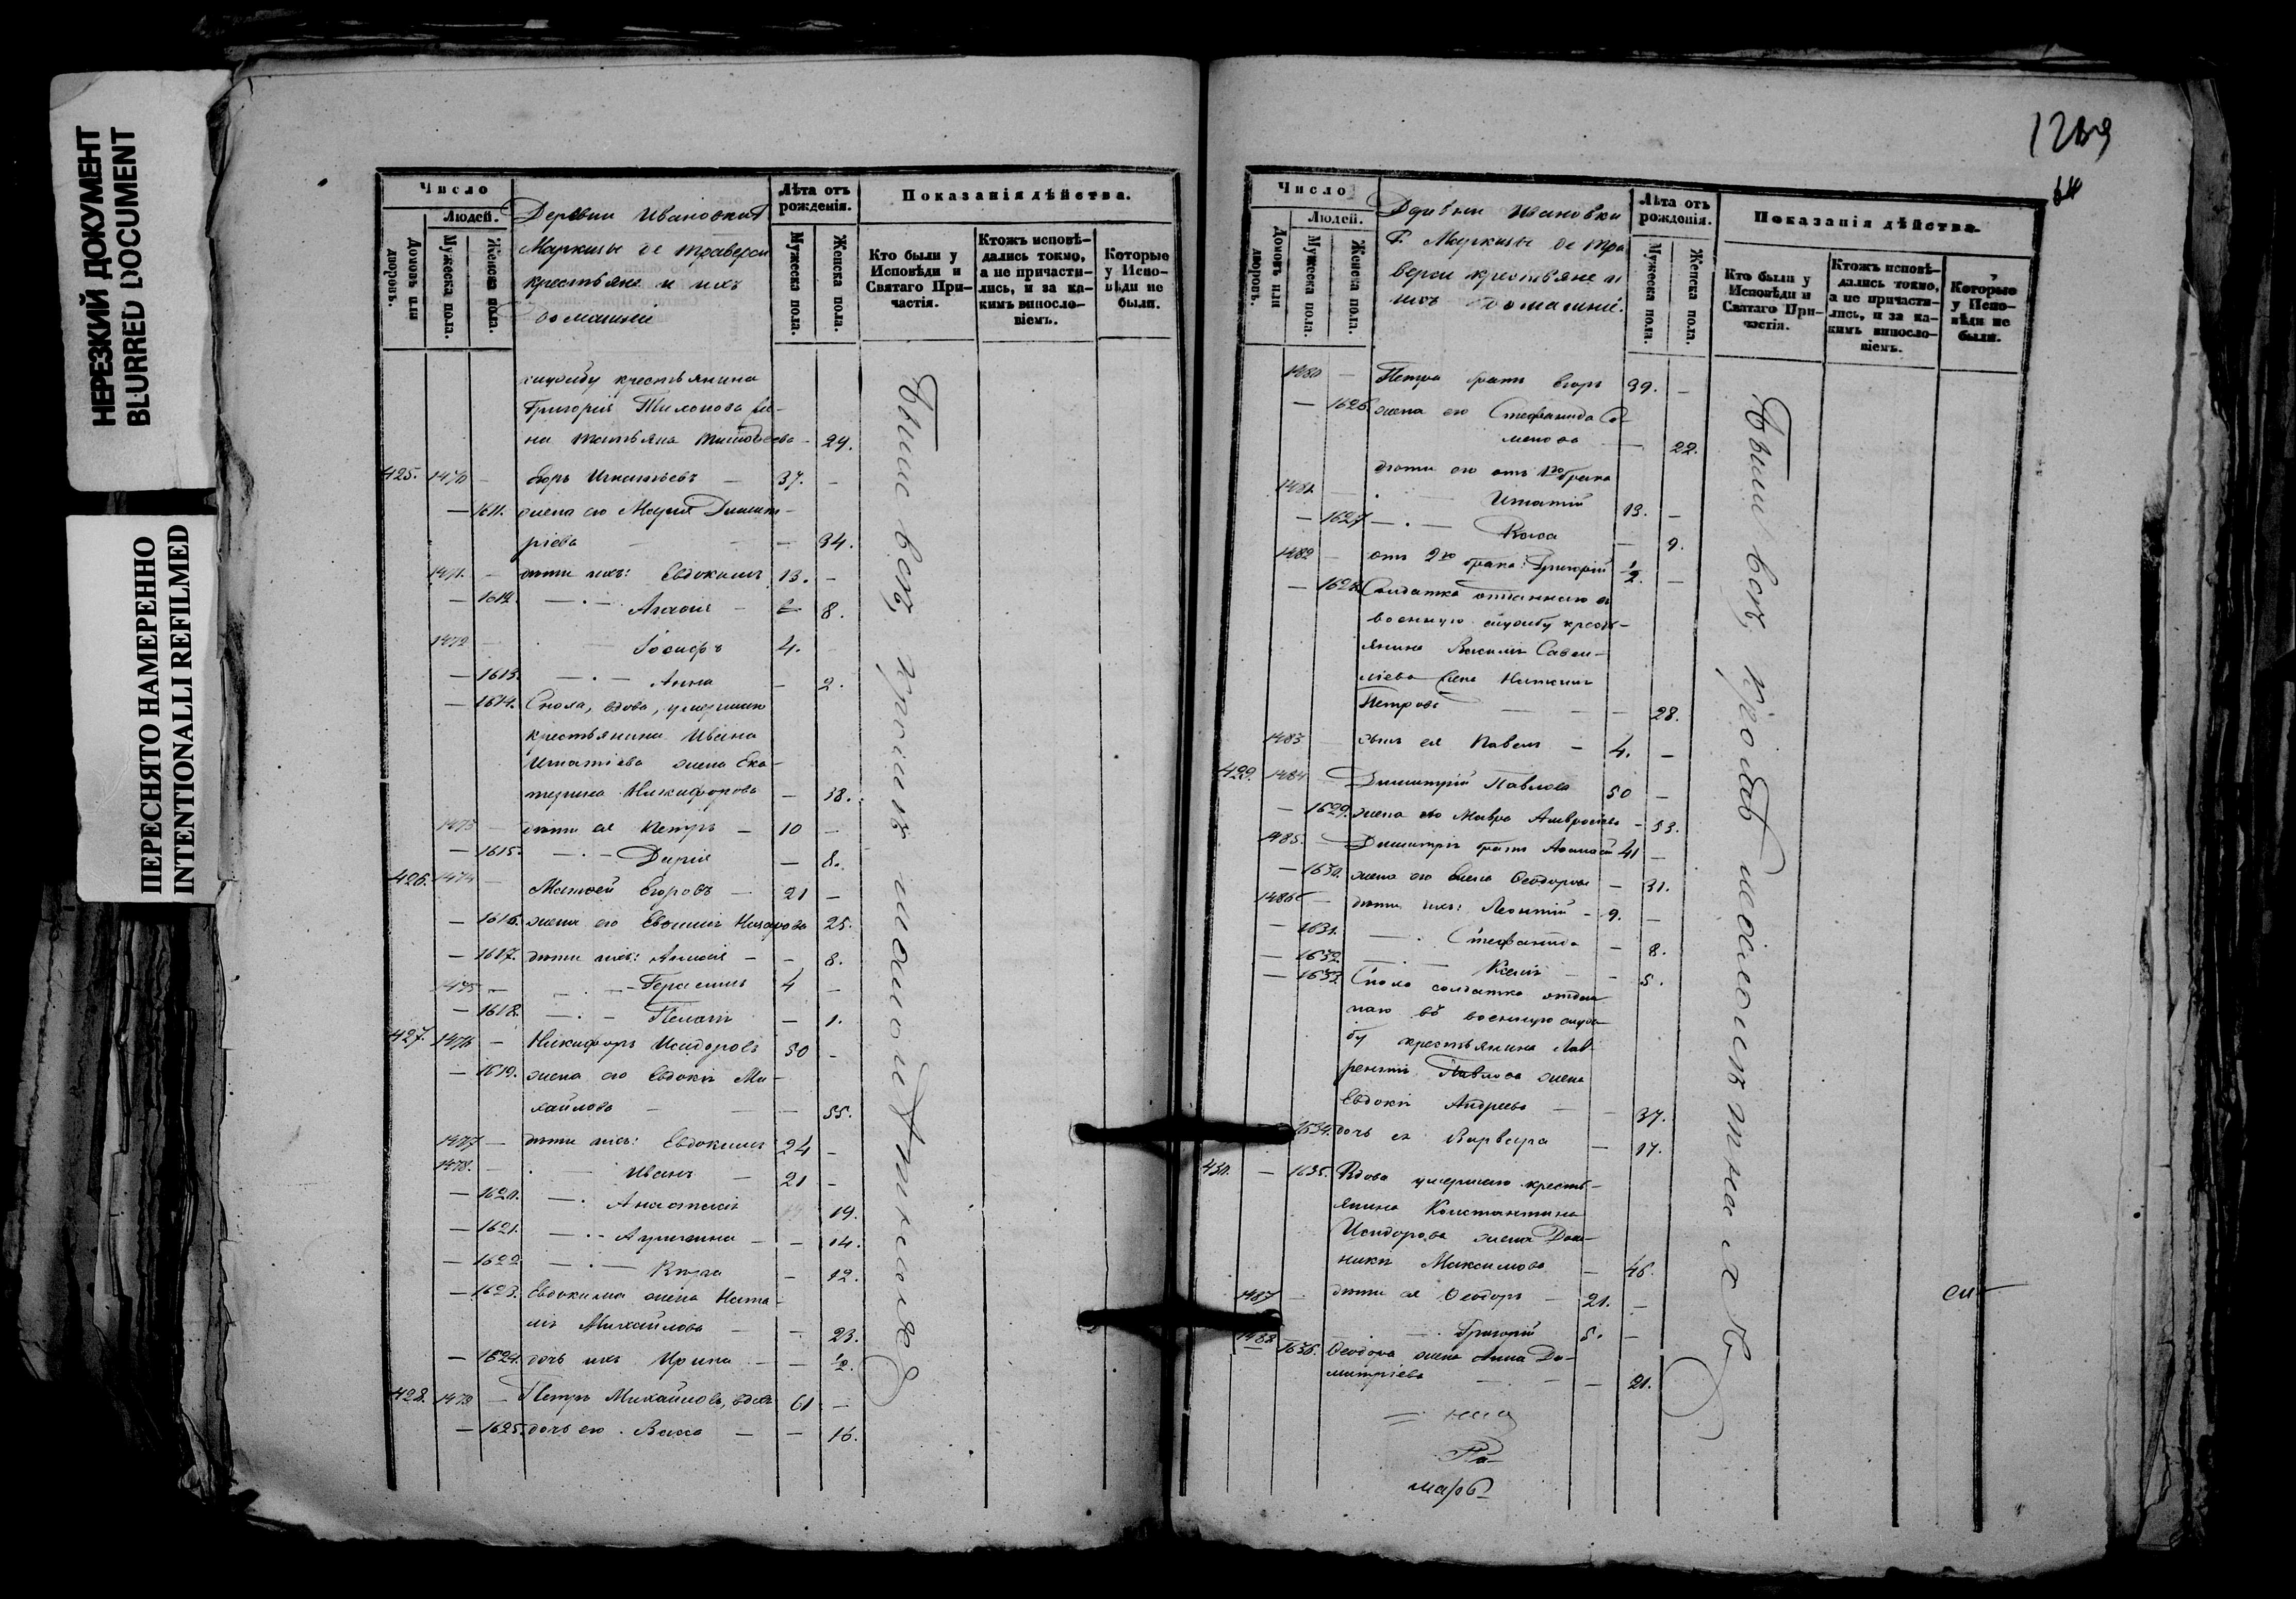 НЕРЕЗКИЙ ДОКУМЕНТ
BLURRED DOCUMENT
ПЕРЕСНЯТО НАМЕРЕННО
INTENTIONALLI REFILMED
Число
Людей.
Домовъ или дворовъ.
Мужеска пола.
Женска пола.
Деревни Ивановки Г
Маркизы де Траверси
крестьяне и ихъ
домашніе
Лѣта отъ рожденія.
Мужеска пола.
Женска пола.
Показанія дѣйства.
Кто были у Исповѣди и Святаго При-частія.
Ктожъ исповѣ-дались токмо, а не причасти-лись, и за ка-кимъ виносло-віемъ.
Которые у Испо-вѣди не были.
службу крестьянина
Григорія Филонова же-
на Татьяна Тимоѳеева - 29.
425. 1470 - Егоръ Игнатьевъ - 37. -
- 1611. жена его Марія Димит-
ріева - - - 34.
1471. - дѣти ихъ: Евдокимъ 13. -
- 1612. - . - Агаѳія - 8.
1472 - Іосифъ 4. -
- 1613. - . - Анна - 2.
- 1614. Сноха, вдова, умершаго
крестьянина Ивана
Игнатіева жена Ека-
терина Никифорова - 38.
1473 - дѣти ея Петръ - 10 -
- 1615. - . - Дарія - 8.
426. 1474 - Матѳей Егоровъ - 21 -
- 1616. жена его Евѳимія Назарова 25.
- 1617. дѣти ихъ: Агаѳія - - 8.
1475 - - . - Герасимъ 4 -
- 1618. - . - Пелагія - 1.
427. 1476 - Никифоръ Исидоровъ 50 -
- 1619. жена его Евдокія Ми-
хайлова - - - 55.
1477 - дѣти ихъ: Евдокимъ 24 -
1478. - . - Иванъ - 21 -
- 1620. - . Анастасія 19.
- 1621. - . - Агрипина - - 14.
- 1622 - . - Кира - 12.
- 1623. Евдокима жена Ната-
лія Михайлова - - 23.
- 1624. дочь ихъ Ирина - - ½.
428. 1479 - Петръ Михайловъ, вдовъ 61 -
- 1625. дочь его Васса - - 16.
Были всѣ, кромѣ малолѣтнихъ
Число
Людей.
Домовъ или дворовъ.
Мужеска пола.
Женска пола.
Деревни Ивановки
Г. Маркизы де Тра
верси крестьяне и
ихъ домашніе.
Лѣта отъ рожденія.
Мужеска пола.
Женска пола.
Показанія дѣйства.
Кто были у Исповѣди и Святаго При-частія.
Ктожъ исповѣ-дались токмо, а не причасти-лись, и за ка-кимъ виносло-віемъ.
Которые у Испо-вѣди не были.
1480 - Петра братъ Егоръ 39. -
- 1626. жена его Стефанида Се-
менова - 22.
дѣти его отъ 1го брака
1481. - . - Игнатій 13. -
- 1627 - . - - 9.
1482 - отъ 2го брака: Григорій ½. -
- 1628. Солдатка отданнаго въ
военную службу кресть-
янина Василія Саве-
лiева жена Наталія
Петрова - - - 28.
1483 - сынъ ея Павелъ - 4. -
429. 1484 - Димитрій Павловъ 50 -
- 1629. жена его Мавра Амвросіева - 53.
1485. - Димитрія братъ Аѳанасій 41 -
- 1630. жена его Елена Ѳеодорова - 31.
1486 - дѣти ихъ: Леонтій - 9. -
- 1631. - . Стефанида - 8.
- 1632. - . - Ксенія - - 5.
- 1633. Сноха солдатка отдан
наго въ военную служ
бу крестьянина Лав-
рентія Павлова жена
Евдокія Андреева - - 37.
1634. дочь ея Варвара - 17.
430. - 1635. Вдова умершаго кресть-
янина Константина
Исидорова жена Дом-
никія Максимова - 46.
1487 - дѣти ея Ѳеодоръ - 21. -
1488 - . Григорій 5. -
- 1636. Ѳеодора жена Анна Ди-
митріева - - - 21.
Были всѣ, кромѣ малолѣтнихъ